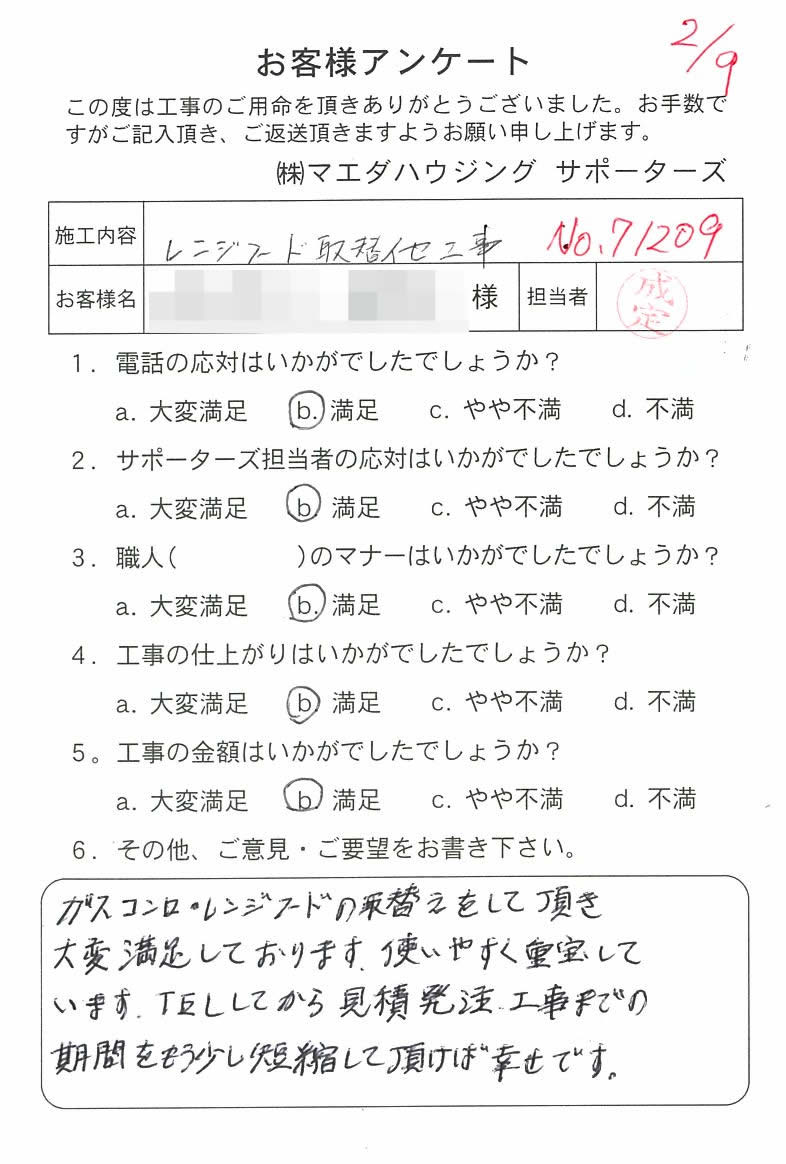 2/9
お客様アンケート
この度は工事のご用命を頂きありがとうございました。お手数で
すがご記入頂き、ご返送頂きますようお願い申し上げます。
㈱マエダハウジング サポーターズ
施工内容 レンジフード取替他工事 No.71209
お客様名 様 担当者 成定
1. 電話の応対はいかがでしたでしょうか？
a. 大変満足 b. 満足 c. やや不満 d. 不満
2. サポーターズ担当者の応対はいかがでしたでしょうか？
a. 大変満足 b. 満足 c. やや不満 d. 不満
3. 職人( )のマナーはいかがでしたでしょうか？
a. 大変満足 b. 満足 c. やや不満 d. 不満
4. 工事の仕上がりはいかがでしたでしょうか？
a. 大変満足 b. 満足 c. やや不満 d. 不満
5。工事の金額はいかがでしたでしょうか？
a. 大変満足 b. 満足 c. やや不満 d. 不満
6. その他、ご意見・ご要望をお書き下さい。
ガスコンロ・レンジフードの取替えをして頂き
大変満足しております。使いやすく重宝して
います。TELしてから見積発注、工事までの
期間をもう少し短縮して頂けば幸せです。